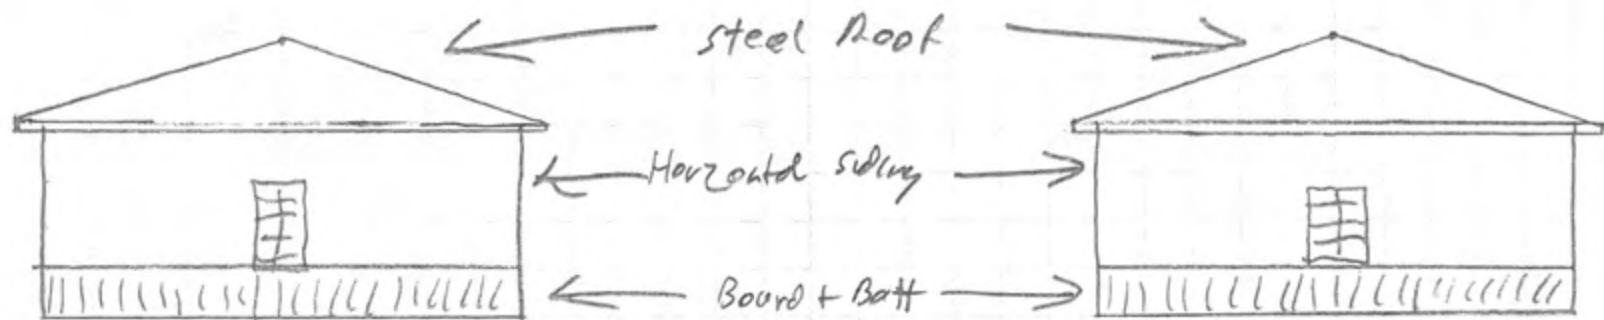 Steel Roof
Horzontal siding
Board + Batt